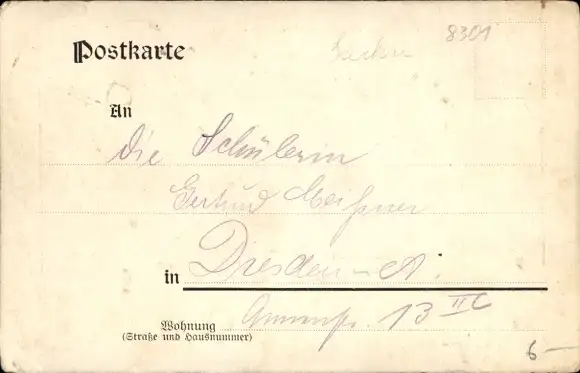 8301
Postkarte
An
die Schülerin
Gertrud Meißner
in Dresden-A.
13 II C
Wohnung
(Straße und Hausnummer)
6-